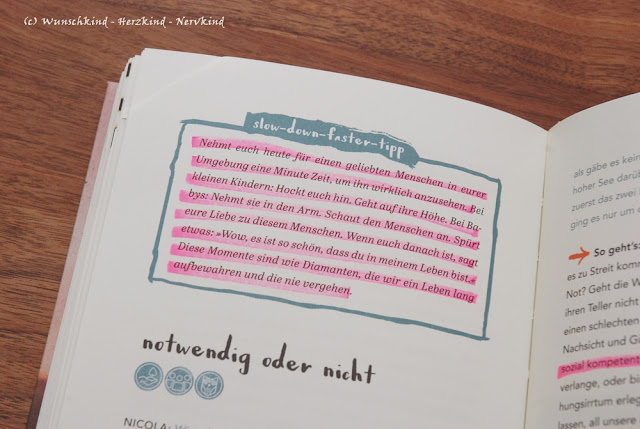 (c) Wunschkind - Herzkind - Nervkind
slow-down-faster-tipp
Nehmt euch heute für einen geliebten Menschen in eurer
Umgebung eine Minute Zeit, um ihn wirklich anzusehen. Bei
kleinen Kindern: Hockt euch hin. Geht auf ihre Höhe. Bei Ba-
bys: Nehmt sie in den Arm. Schaut den Menschen an. Spürt
eure Liebe zu diesem Menschen. Wenn euch danach ist, sagt
etwas: »Wow, es ist so schön, dass du in meinem Leben bist.«
Diese Momente sind wie Diamanten, die wir ein Leben lang
aufbewahren und die nie vergehen.
notwendig oder nicht
NICOLA:
als gäbe es keinen
hoher See darü
zuerst das zwei
ging es nur um
So geht's
es zu Streit kom
Not? Geht die W
ihren Teller nicht
einen schlechten
Nachsicht und Gü
sozial kompetent
verlange, oder bi
hungsirrtum erleg
lassen, all unsere